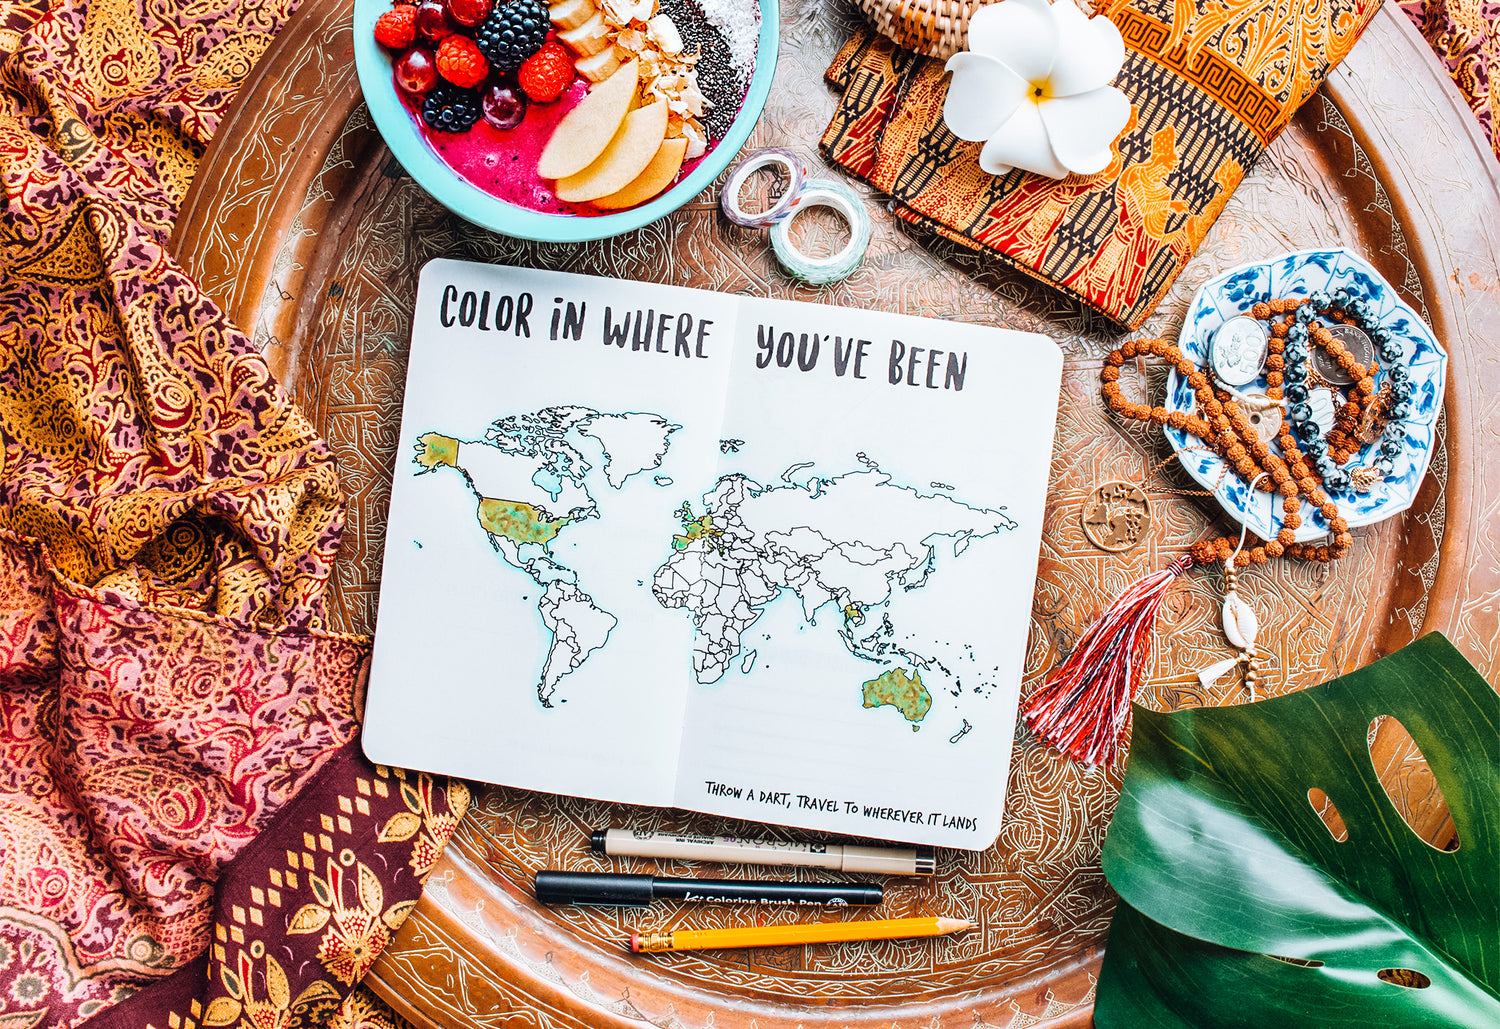 COLOR IN WHERE YOU'VE BEEN
THROW A DART, TRAVEL TO WHEREVER IT LANDS
MICRON 05
ARCHIVAL INK
Coloring Brush Pen